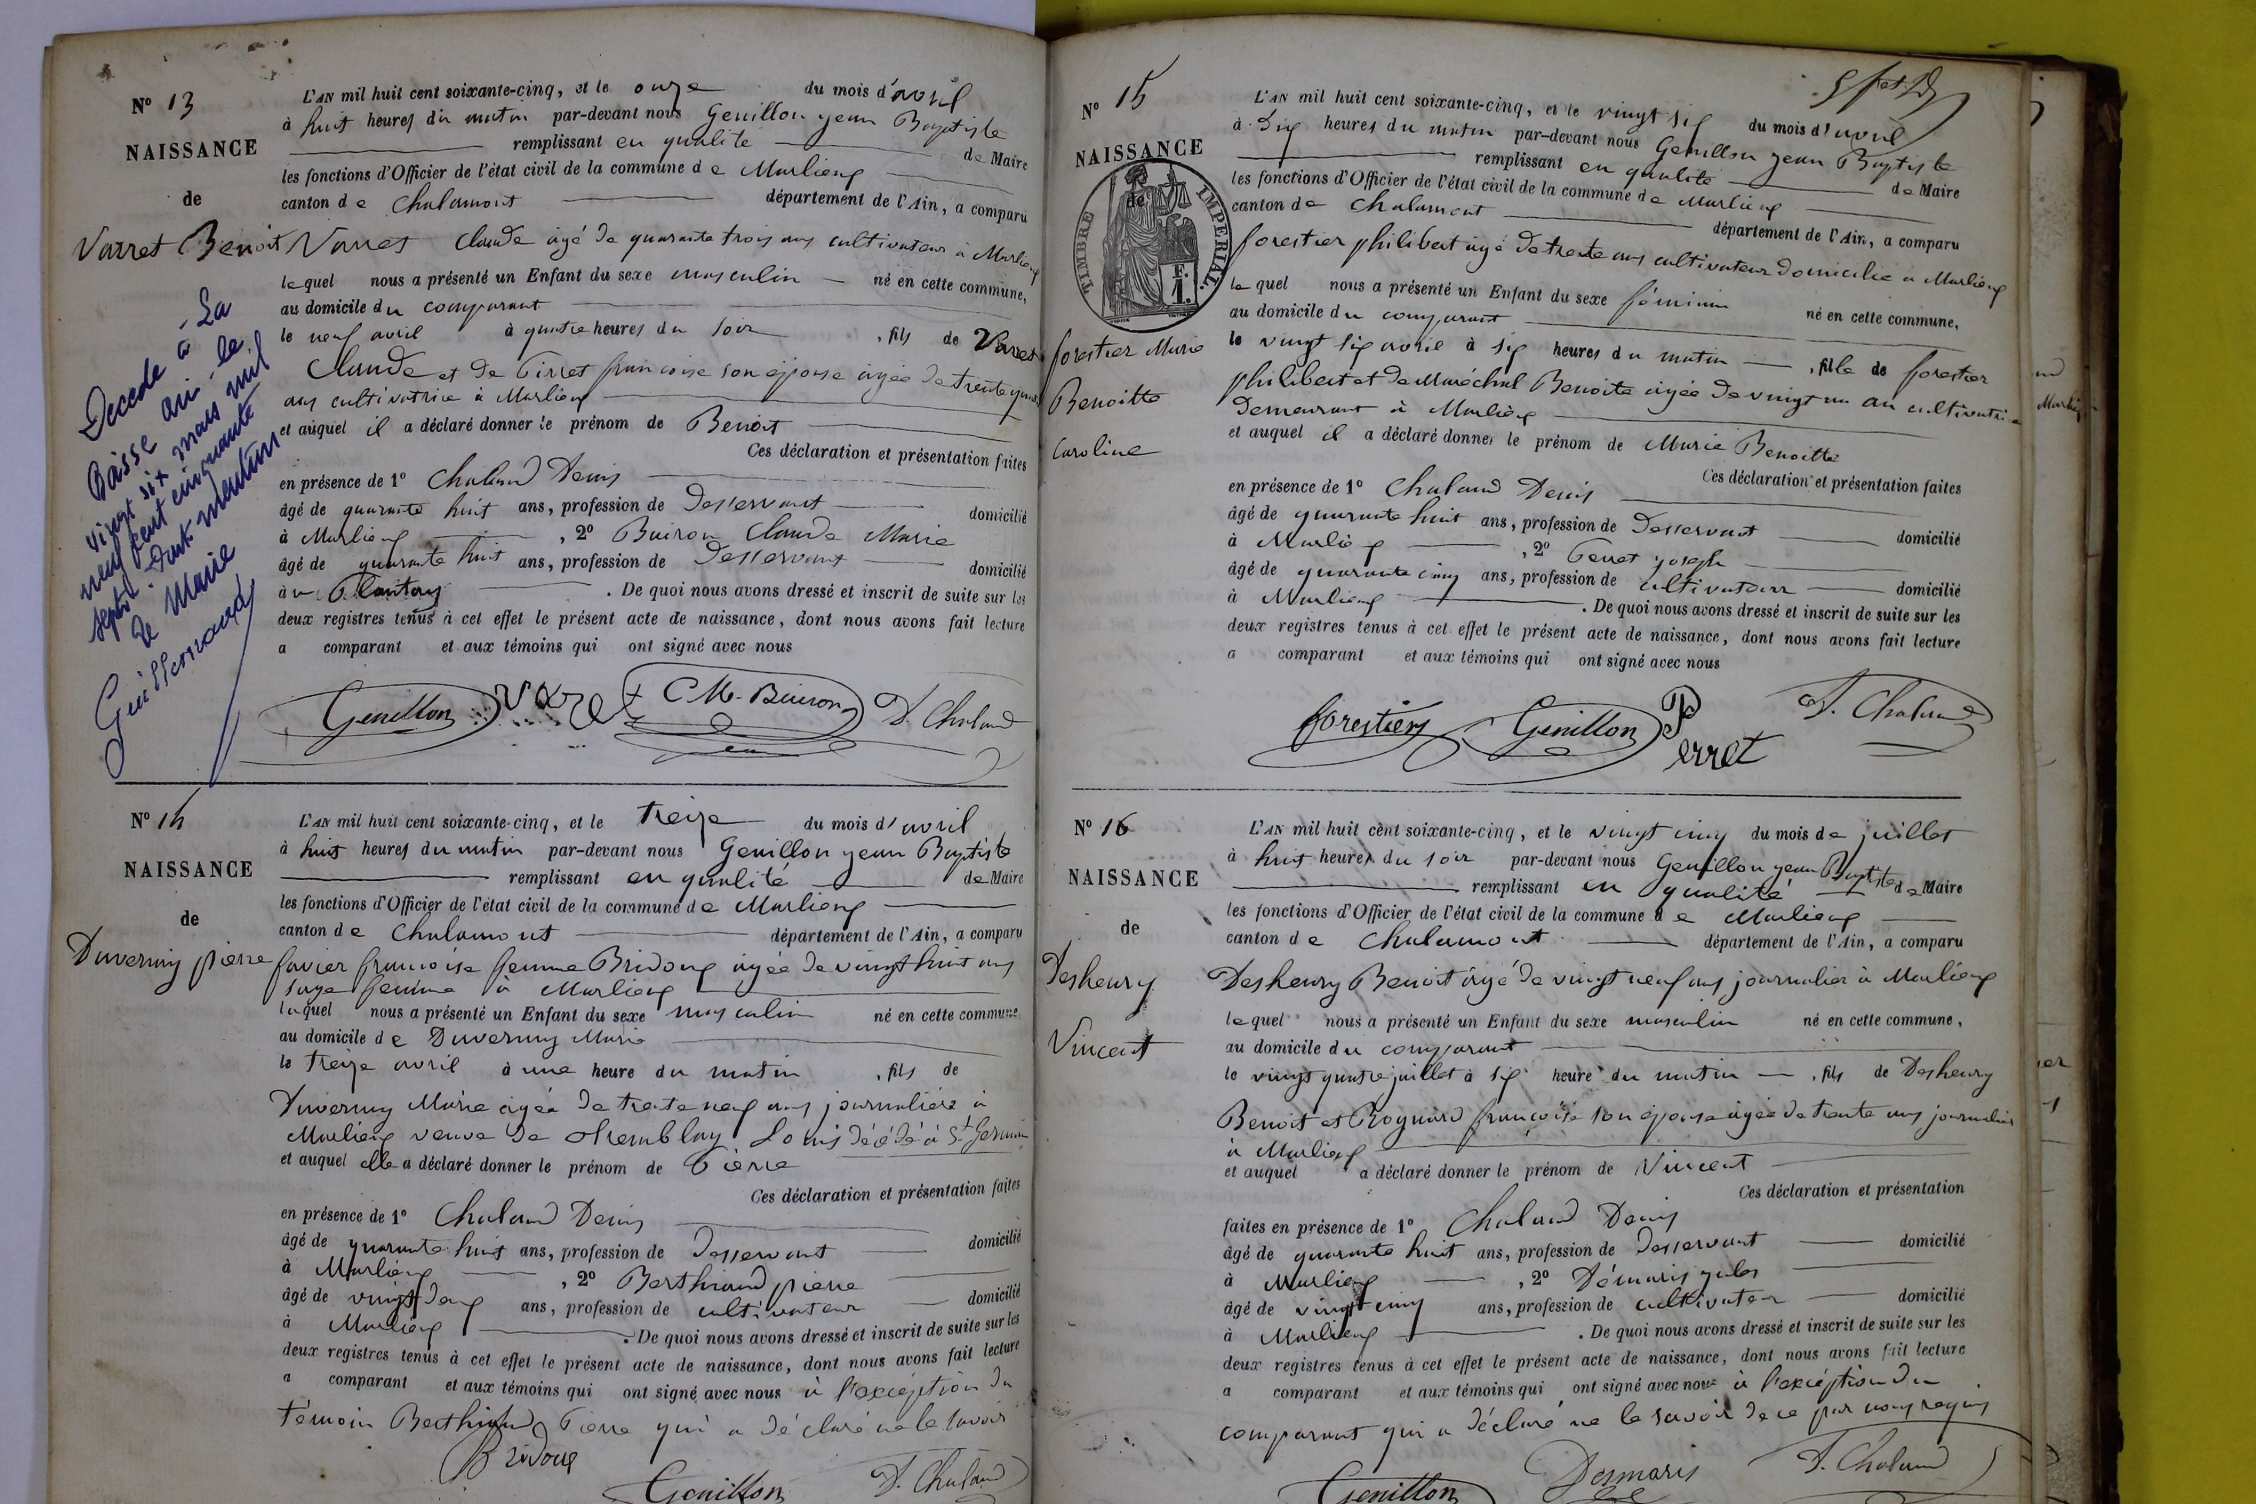 N° 13
NAISSANCE
de
Varret Benoit
Décédé à La
Boisse ain le
vingt six mars mil
neuf cent cinquante
sept. Dont mention
de Mairie
Guillermard
L'AN mil huit cent soixante-cinq, et le onze du mois d'avril
à huit heures du matin par-devant nous Genillon jean Baptiste
remplissant en qualité de Maire
les fonctions d'Officier de l'état civil de la commune de Marlieux
canton de Chalamont département de l'Ain, a comparu
Varret Claude âgé de quarante trois ans cultivateur à Marlieux
lequel nous a présenté un Enfant du sexe masculin né en cette commune,
au domicile du comparant
le neuf avril à quatre heures du soir, fils de Varret
Claude et de Pirret francoise son épouse âgée de trente
ans cultivatrice à Marlieux
et auquel il a déclaré donner le prénom de Benoit
Ces déclaration et présentation faites
en présence de 1° Chaland Denis
âgé de quarante huit ans, profession de Desservant domicilié
à Marlieux, 2° Buiron Claude Marie
âgé de quarante huit ans, profession de Desservant domicilié
à Plantay. De quoi nous avons dressé et inscrit de suite sur les
deux registres tenus à cet effet le présent acte de naissance, dont nous avons fait lecture
a comparant et aux témoins qui ont signé avec nous
Genillon varret C M. Buiron D. Chaland
N° 14
NAISSANCE
de
Duvernay pierre
L'AN mil huit cent soixante-cinq, et le treize du mois d'avril
à huit heures du matin par-devant nous Genillon jean Baptiste
remplissant en qualité de Maire
les fonctions d'Officier de l'état civil de la commune de Marlieux
canton de Chalamont département de l'Ain, a comparu
favier francoise femme Bridoux âgée de vingt huit ans
sage femme à Marlieux
laquel nous a présenté un Enfant du sexe masculin né en cette commune
au domicile de Duvernay Marie
le treize avril à une heure du matin, fils de
Duvernay Marie âgée de trente neuf ans journalière à
Marlieux veuve de Tremblay Louis décédé à St Germain
et auquel elle a déclaré donner le prénom de Pierre
Ces déclaration et présentation faites
en présence de 1° Chaland Denis
âgé de quarante huit ans, profession de Desservant domicilié
à Marlieux, 2° Berthiaud pierre
âgé de vingt deux ans, profession de cultivateur domicilié
à Marlieux. De quoi nous avons dressé et inscrit de suite sur les
deux registres tenus à cet effet le présent acte de naissance, dont nous avons fait lecture
a comparant et aux témoins qui ont signé avec nous à l'exception du
témoin Berthiaud Pierre qui a déclaré ne le savoir
Bridoux
Genillon D. Chaland
N° 15
NAISSANCE
de
TIMBRE IMPERIAL.
F.
1.
forestier Marie
Benoitte
Caroline
L'AN mil huit cent soixante-cinq, et le vingt six du mois d'avril
à Dix heures du matin par-devant nous Genillon jean Baptiste
remplissant en qualité de Maire
les fonctions d'Officier de l'état civil de la commune de Marlieux
canton de Chalamont département de l'Ain, a comparu
forestier philibert âgé de trente ans cultivateur domicilié à Marlieux
lequel nous a présenté un Enfant du sexe féminin né en cette commune,
au domicile du comparant
le vingt six avril à six heures du matin, fille de forestier
philibert et de Maréchal Benoite âgée de vingt un an cultivatrice
Demeurant à Marlieux
et auquel il a déclaré donner le prénom de Marie Benoitte
Ces déclaration et présentation faites
en présence de 1° Chaland Denis
âgé de quarante huit ans, profession de Desservant domicilié
à Marlieux, 2° Perret joseph
âgé de quarante cinq ans, profession de cultivateur domicilié
à Marlieux. De quoi nous avons dressé et inscrit de suite sur les
deux registres tenus à cet effet le présent acte de naissance, dont nous avons fait lecture
a comparant et aux témoins qui ont signé avec nous
forestier Genillon Perret D. Chaland
N° 16
NAISSANCE
de
Desheury
Vincent
L'AN mil huit cent soixante-cinq, et le vingt cinq du mois de juillet
à huit heures du soir par-devant nous Genillon jean Baptiste
remplissant en qualité de Maire
les fonctions d'Officier de l'état civil de la commune de Marlieux
canton de Chalamont département de l'Ain, a comparu
Desheury Benoit âgé de vingt neuf ans journalier à Marlieux
lequel nous a présenté un Enfant du sexe masculin né en cette commune,
au domicile du comparant
le vingt quatre juillet à six heure du matin, fils de Desheury
Benoit et Rognard francoise son épouse âgée de trente ans journalier
à Marlieux
et auquel a déclaré donner le prénom de Vincent
Ces déclaration et présentation
faites en présence de 1° Chaland Denis
âgé de quarante huit ans, profession de Desservant domicilié
à Marlieux, 2° Démaris jules
âgé de vingt cinq ans, profession de cultivateur domicilié
à Marlieux. De quoi nous avons dressé et inscrit de suite sur les
deux registres tenus à cet effet le présent acte de naissance, dont nous avons fait lecture
a comparant et aux témoins qui ont signé avec nous à l'exception du
comparant qui a déclaré ne le savoir de ce par nous requis
Genillon Desmaris D. Chaland